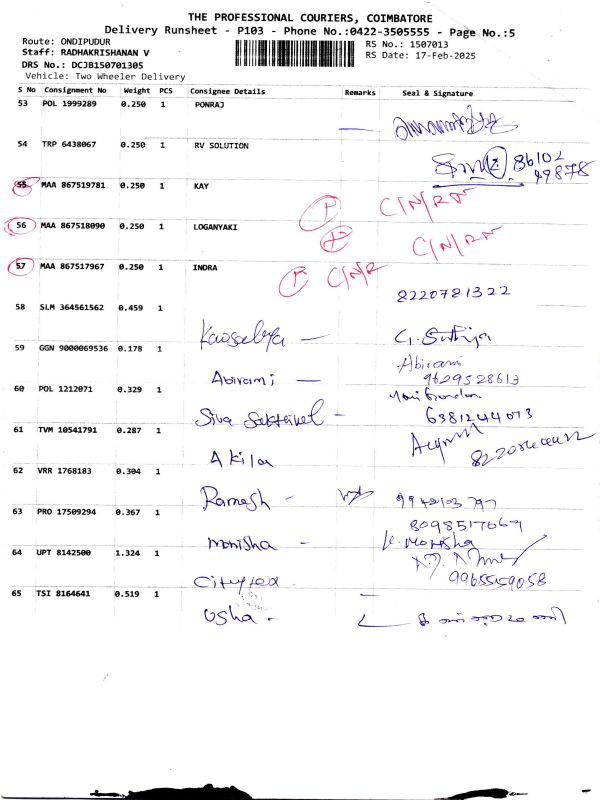 THE PROFESSIONAL COURIERS, COIMBATORE
Delivery Runsheet - P103 - Phone No.:0422-3505555 - Page No.:5
Route: ONDIPUDUR RS No.: 1507013
Staff: RADHAKRISHANAN V RS Date: 17-Feb-2025
DRS No.: DCJB150701305
Vehicle: Two Wheeler Delivery
S No Consignment No Weight PCS Consignee Details Remarks Seal & Signature
53 POL 1999289 0.250 1 PONRAJ
54 TRP 6438067 0.250 1 RV SOLUTION
86102
49878
55 MAA 867519781 0.250 1 KAY C/N/RN
56 MAA 867518090 0.250 1 LOGANYAKI C/N/RN
57 MAA 867517967 0.250 1 INDRA C/N/R
8220781322
58 SLM 364561562 0.459 1
Kausalya G. Suthija
59 GGN 9000069536 0.178 1
Abirami
Abirami 9629528613
60 POL 1212071 0.329 1
Siva Sakthivel 6381244073
61 TVM 10541791 0.287 1
Akila
62 VRR 1768183 0.304 1
Ramesh
63 PRO 17509294 0.367 1
8098517669
Monisha K. Monisha
64 UPT 8142500 1.324 1
9965559058
65 TSI 8164641 0.519 1
Usha